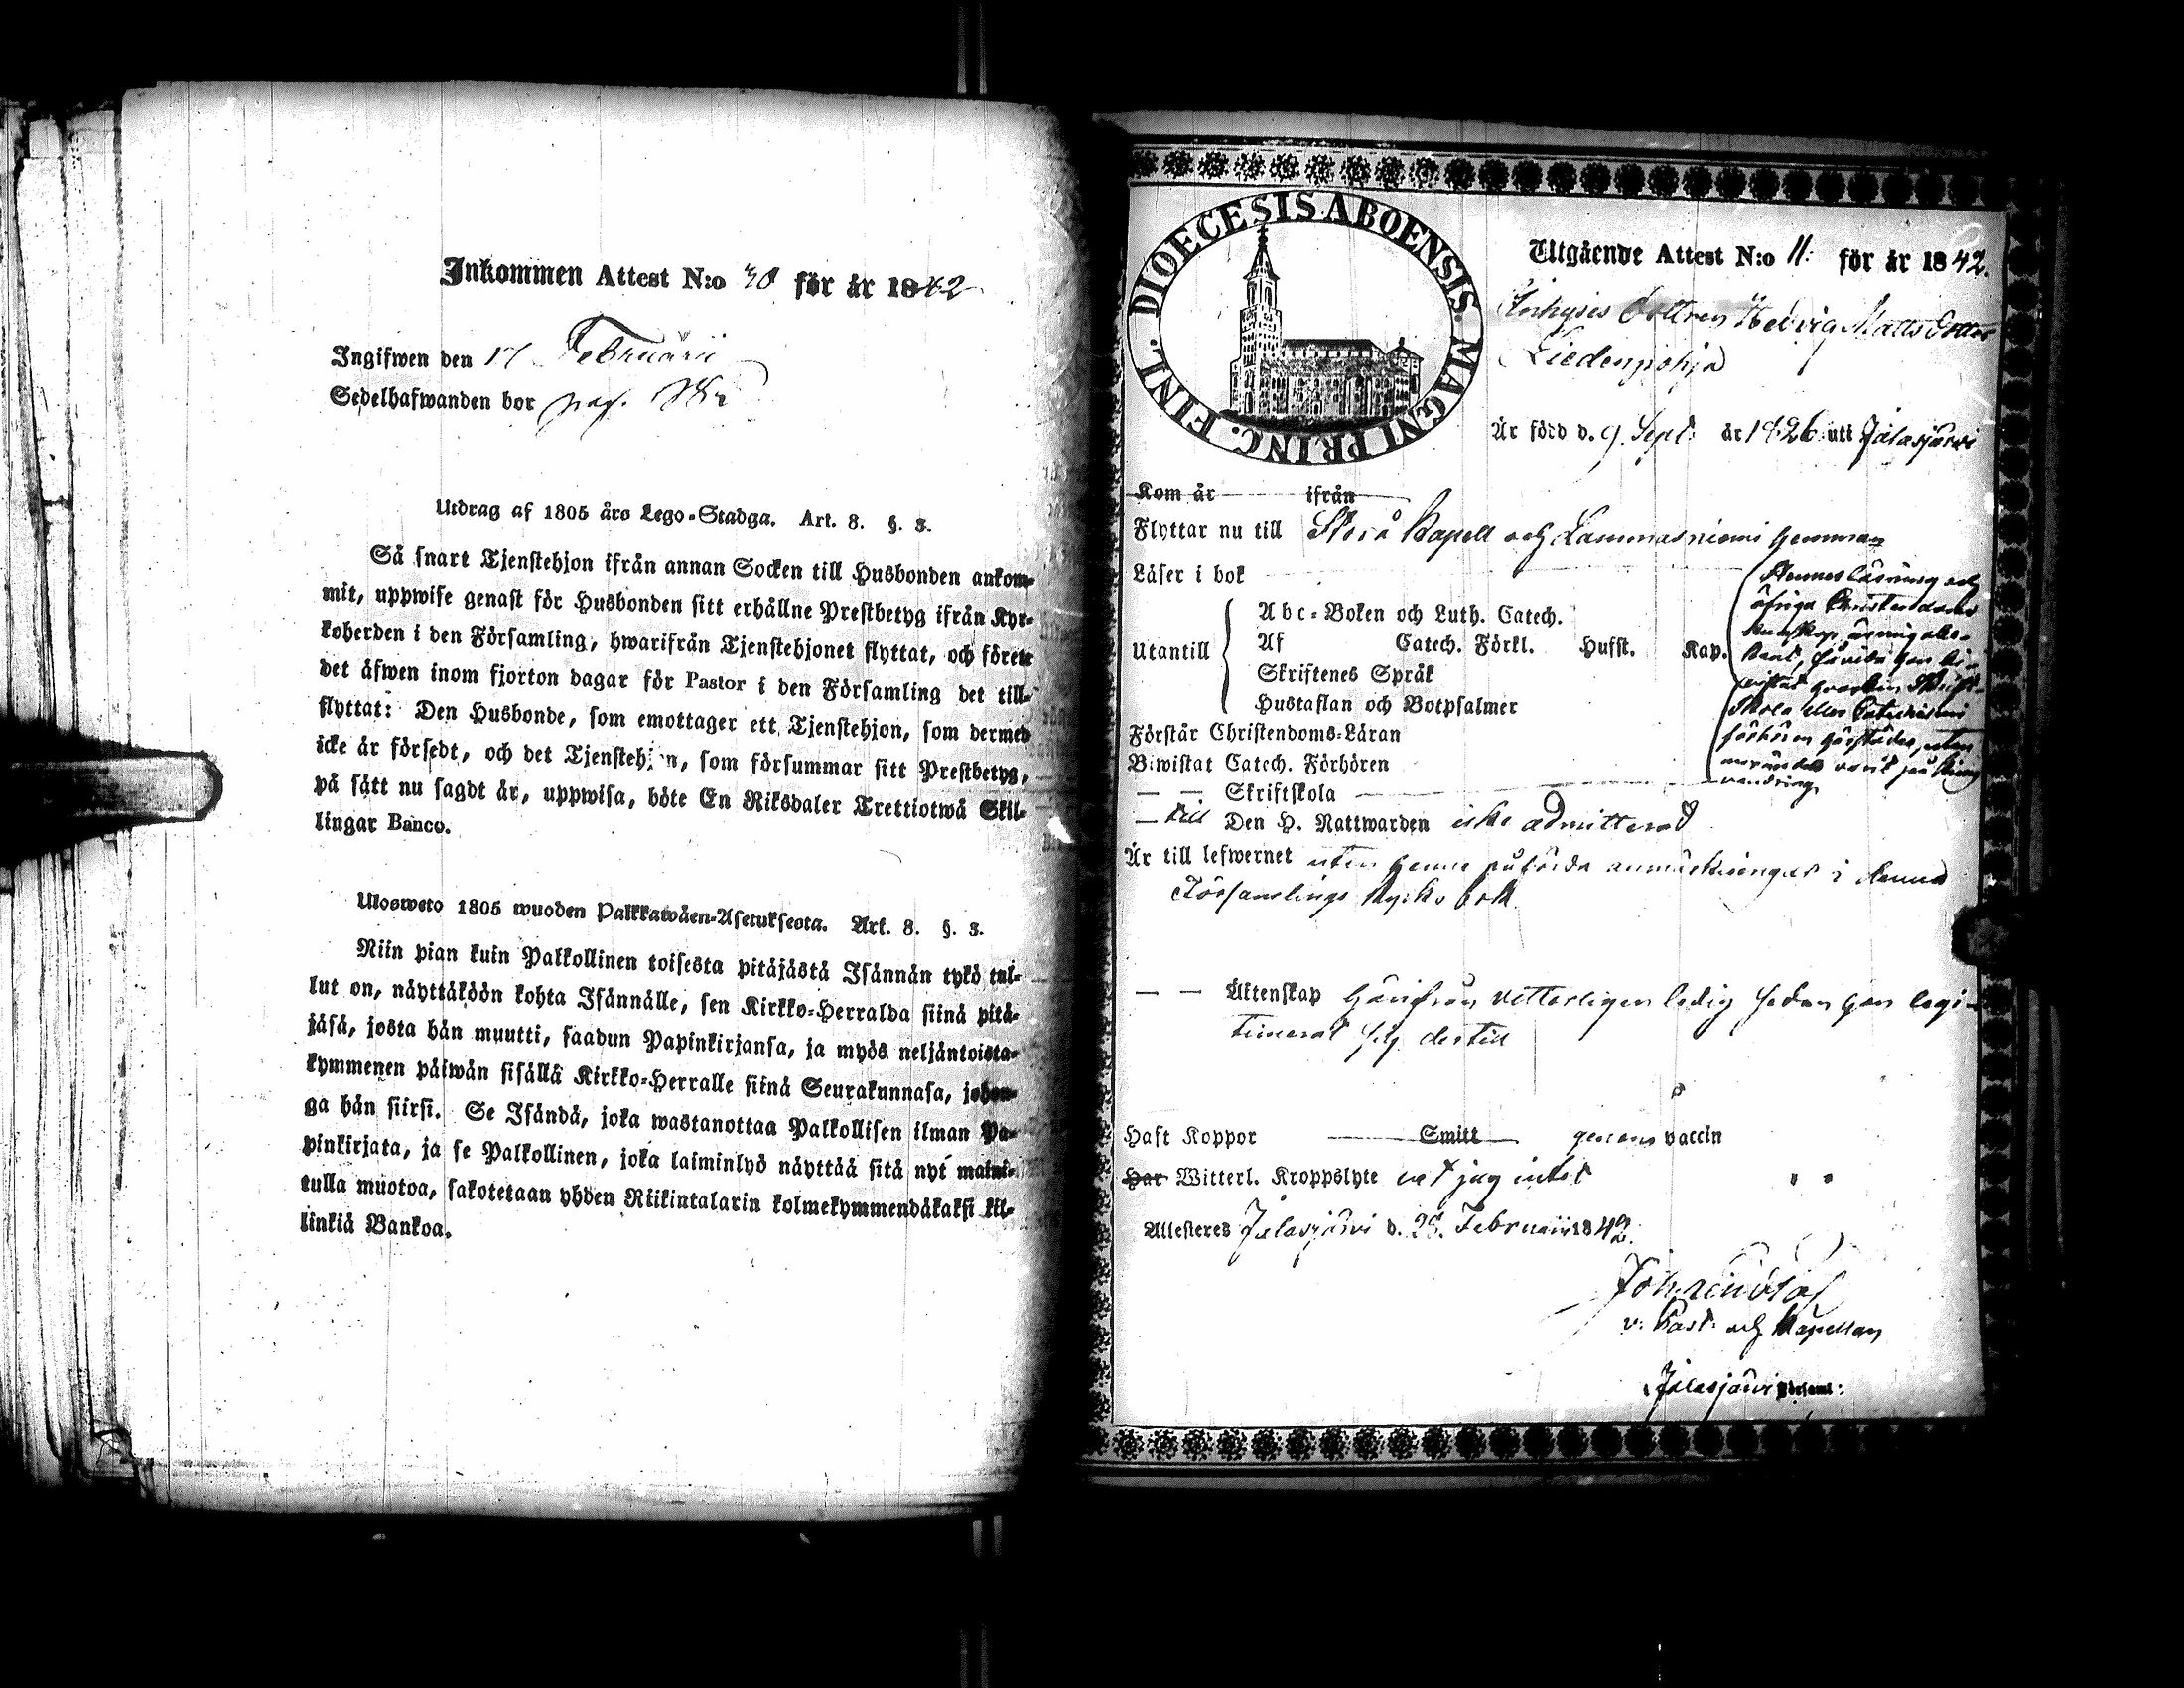 Inkommen Attest N:o 30 för år 1842
Ingifwen den 17 Februarii
Sedelhafwanden bor pag.
Utdrag af 1805 års Lego-Stadga. Art. 8. §. 3.
Så snart Tjenstehjon ifrån annan Socken till Husbonden ankom-
mit, uppwise genast för Husbonden sitt erhållne Prestbetyg ifrån Kyr-
koherden i den Församling, hwarifrån Tjenstehjonet flyttat, och förete
det äfwen inom fjorton dagar för Pastor i den Församling det till-
flyttat: Den Husbonde, som emottager ett Tjenstehjon, som dermed
icke är försedt, och det Tjenstehjon, som försummar sitt Prestbetyg,
på sätt nu sagdt är, uppwisa, böte En Riksdaler Trettiotwå Skil-
lingar Banco.
Ulosweto 1805 wuoden Palkkawäen-Asetuksesta. Art. 8. §. 3.
Niin pian kuin Palkollinen toisesta pitäjästä Isännän tykö tul-
lut on, näyttäköön kohta Isännälle, sen Kirkko-Herralda siinä pitä-
jäsä, josta hän muutti, saadun Papinkirjansa, ja myös neljäntoista-
kymmenen päiwän sisällä Kirkko-Herralle siinä Seurakunnasa, johon-
ga hän siirsi. Se Isändä, joka wastanottaa Palkollisen ilman Pa-
pinkirjata, ja se Palkollinen, joka laiminlyö näyttää sitä nyt maini-
tulla muotoa, sakotetaan yhden Riikintalarin kolmekymmendäkaksi kil-
linkiä Bankoa.
DIOECESIS ABOENSIS. MAGNI PRINC. FINL.
Utgående Attest N:o 11: för år 1842.
Inhyses Dottren Hedvig Matts Dotter
Liedenpohja
Är född d. 9 Sept: år 1826 uti Jalasjärvi
Kom år ifrån
Flyttar nu till Storå Kapell och Lammasniemi hemman
Läser i bok
Utantill
Abc-Boken och Luth. Catech.
Af Catech. Förkl. Husst. Kap.
Skriftenes Språk
Hustaflan och Botpsalmer
Förstår Christendoms-Läran
Biwistat Catech. Förhören
— — Skriftskola
Hennes läsning och
öfriga Christendoms
kunskap är mig obe-
kant, hon bi-
vistat hvarken Skrift-
skola eller Catechismi
förhören härstädes, utan
varit på kring
vandring
— till Den H. Nattwarden icke admitterad
Är till lefwernet utan henne påförda anmärkningar i denna
Församlings Kyrko bok
— — Äktenskap härifrån vetterligen ledig sedan hon legi-
timerat sig dertill
Haft Koppor Smitt genom vaccin
Har Witterl. Kroppslyte vet jag intet
Attesteres Jalasjärvi d. 28. Februarii 1842.
v. Past. och Kapellan
Jalasjärvi Församl: